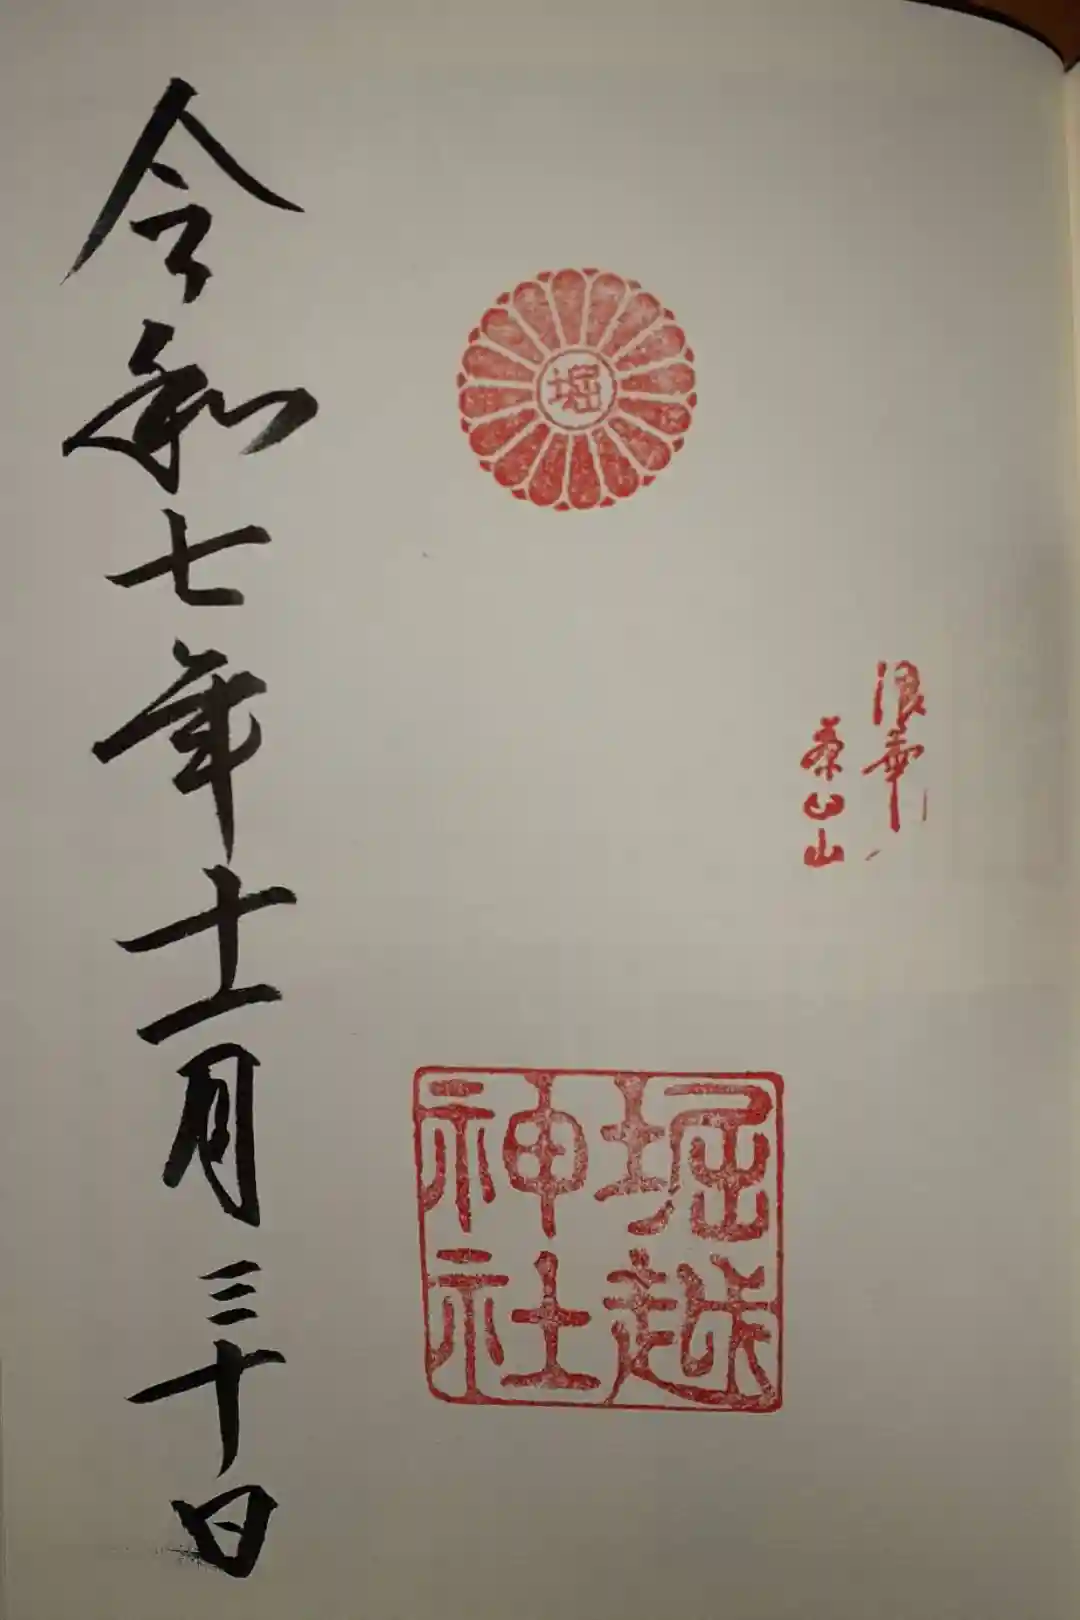 浪華
茶臼山
堀
堀越
神社
令和七年十一月三十日